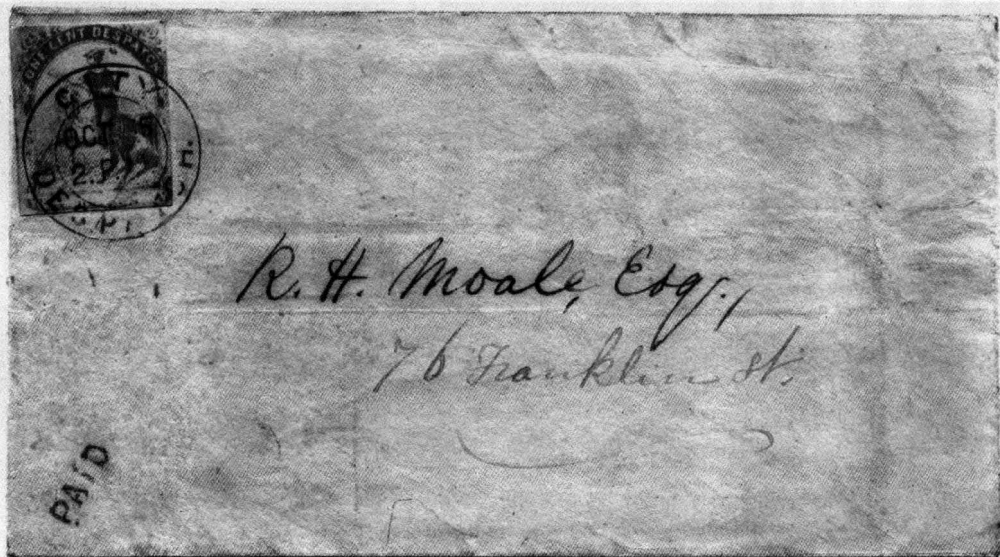 ONE CENT DESPATCH
CITY
OCT
2 P.
R. H. Moale, Esq.,
76 Franklin St.
PAID